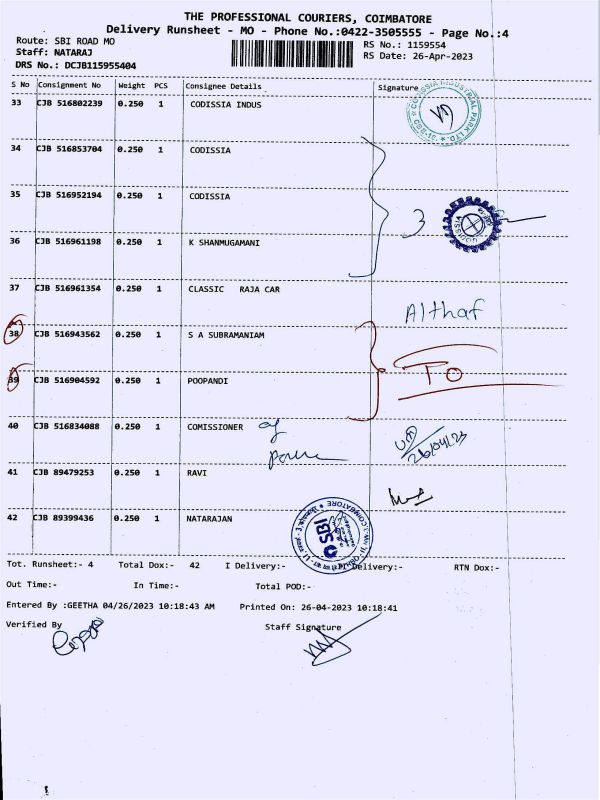 THE PROFESSIONAL COURIERS, COIMBATORE
Delivery Runsheet - MO - Phone No.:0422-3505555 - Page No.:4
Route: SBI ROAD MO RS No.: 1159554
Staff: NATARAJ RS Date: 26-Apr-2023
DRS No.: DCJB115955404
S No Consignment No Weight PCS Consignee Details Signature
33 CJB 516802239 0.250 1 CODISSIA INDUS
34 CJB 516853704 0.250 1 CODISSIA
35 CJB 516952194 0.250 1 CODISSIA
3
CODISSIA
36 CJB 516961198 0.250 1 K SHANMUGAMANI
37 CJB 516961354 0.250 1 CLASSIC RAJA CAR
Althaf
38 CJB 516943562 0.250 1 S A SUBRAMANIAM
39 CJB 516904592 0.250 1 POOPANDI
TO
40 CJB 516834088 0.250 1 COMISSIONER of
26/04/23
41 CJB 89479253 0.250 1 RAVI
42 CJB 89399436 0.250 1 NATARAJAN
SBI
COIMBATORE
Tot. Runsheet:- 4 Total Dox:- 42 I Delivery:- Delivery:- RTN Dox:-
Out Time:- In Time:- Total POD:-
Entered By :GEETHA 04/26/2023 10:18:43 AM Printed On: 26-04-2023 10:18:41
Verified By Staff Signature